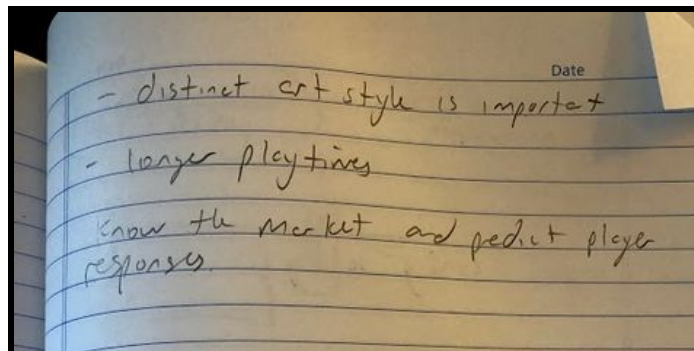 Date
- distinct art style is importat
- longer playtimes
know the market and pedict player
responses.